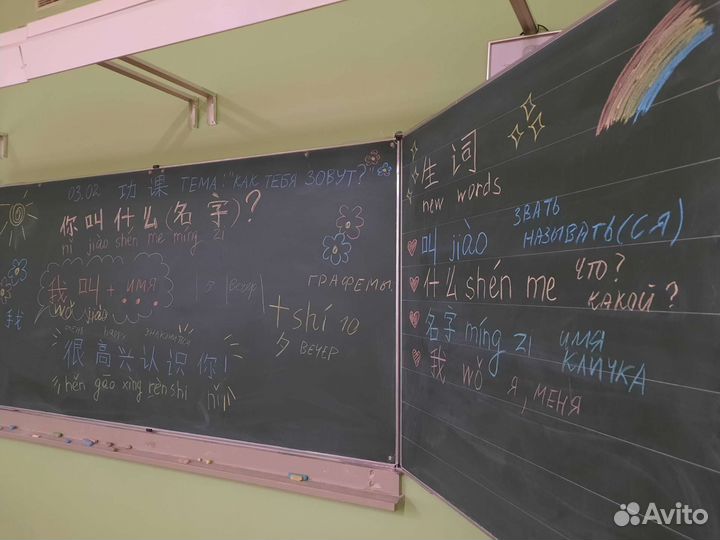 03.02 功课 ТЕМА: "КАК ТЕБЯ ЗОВУТ?"
你叫什么(名字)?
nǐ jiào shén me míng zì
我叫+ИМЯ
wǒ jiào
ГРАФЕМЫ
十 shí 10
夕 ВЕЧЕР
happy знакомиться
很高兴认识你!
hěn gāo xìng rèn shi nǐ
我
生词
new words
叫 jiào ЗВАТЬ
НАЗЫВАТЬ(СЯ)
什么 shén me ЧТО?
КАКОЙ?
名字 míng zì ИМЯ
КЛИЧКА
我 wǒ Я, МЕНЯ
Avito